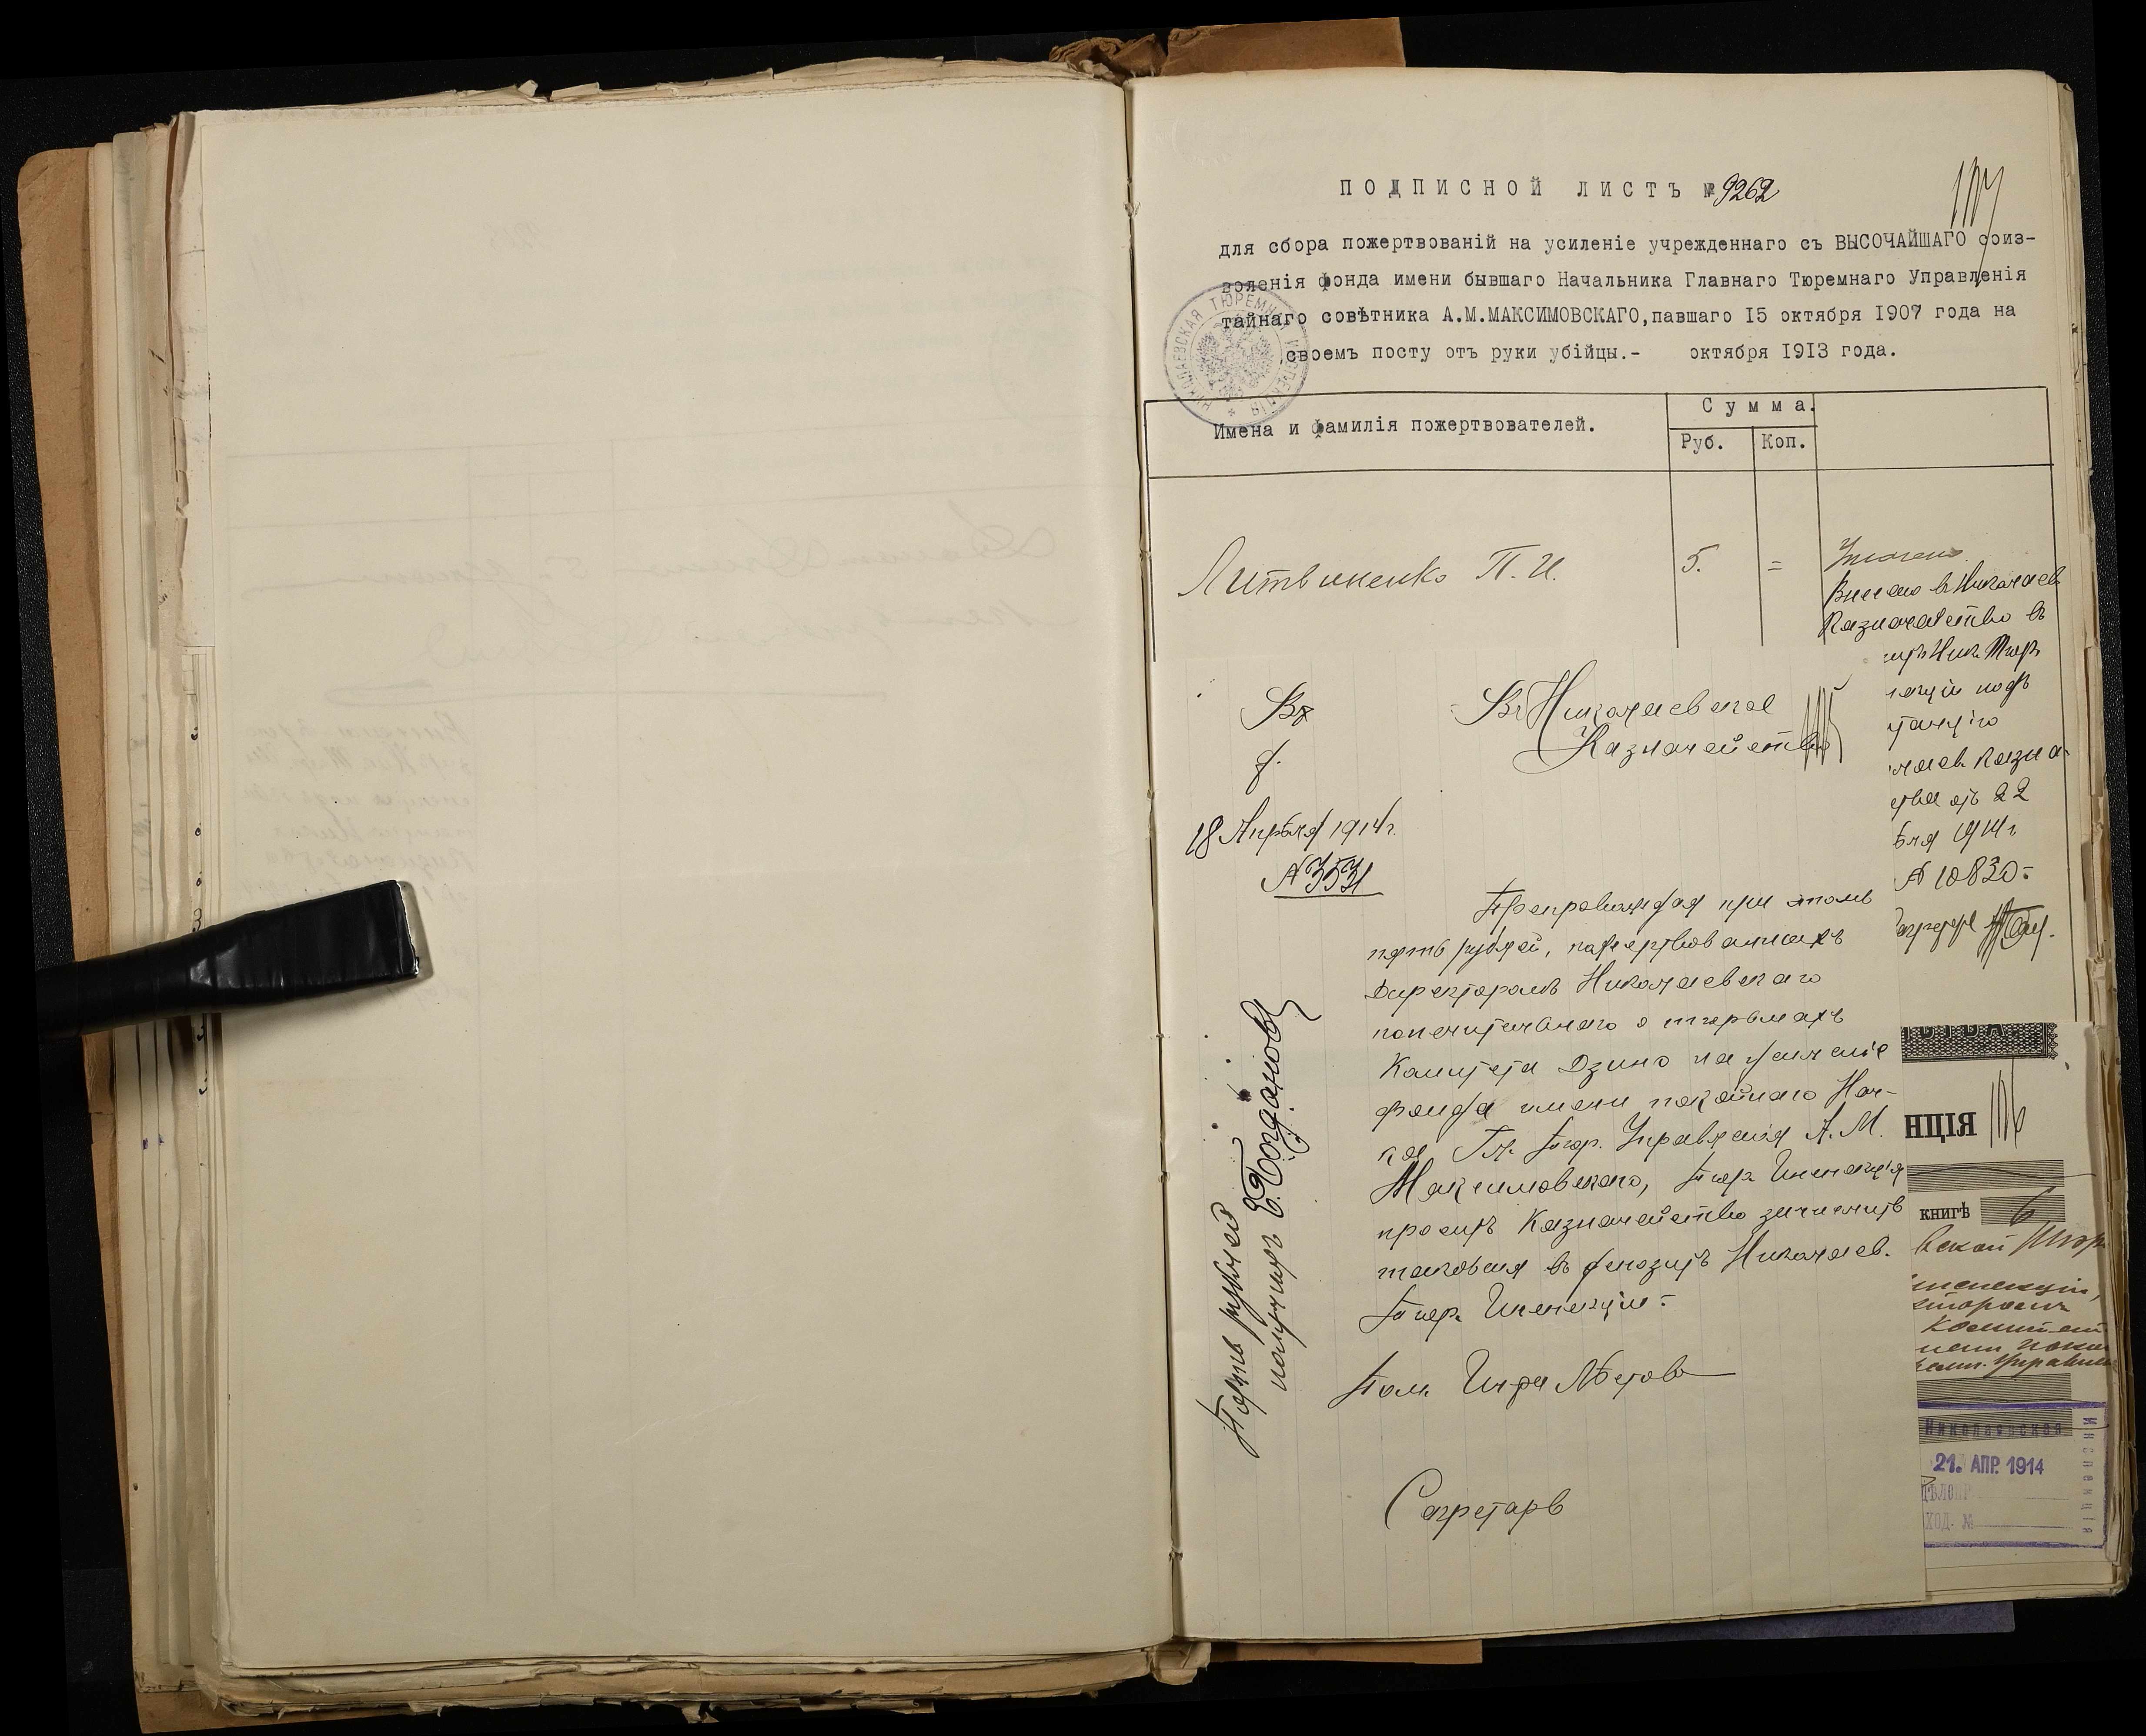 ПОДПИСНОЙ ЛИСТЪ № 9262
для сбора пожертвованій на усиленіе учрежденнаго съ ВЫСОЧАЙШАГО соиз-
воленія фонда имени бывшаго Начальника Главнаго Тюремнаго Управленія
тайнаго совѣтника А.М.МАКСИМОВСКАГО, павшаго 15 октября 1907 года на
своемъ посту отъ руки убійцы.- октября 1913 года.
НИКОЛАЕВСКАЯ ТЮРЕМНАЯ ИНСПЕКЦІЯ
Имена и фамилія пожертвователей.
Сумма.
Руб.
Коп.
Литвиненко П.И.
5.
=
Внесено въ Николаев
Казначейство въ
Ник. Тюр.
подъ
Казна-
22
1914 г.
№ 10830
Въ Николаевское
Казначейство
18 Апрѣля 1914 г.
№ 3531
Препровождая при этомъ
пять рублей, пожертвованныхъ
Директоромъ Николаевскаго
попечительнаго о тюрьмахъ
Комитета Дзино на усиленіе
фонда имени покойнаго Нач-
ка Гл. Тюр. Управленія А.М.
Максимовскаго, Тюр. Инспекція
проситъ Казначейство зачислить
таковыя въ депозитъ Николаев.
Тюр. Инспекціи.
Пом. Инсра
Секретарь
Пять рублей
получилъ Е. Богдановъ
НЦІЯ
106
книгѣ 6
вской Тюр
инспекціи,
Комитет
Управлен
Николаевская
Инспекція
21. АПР. 1914
ХОД. №